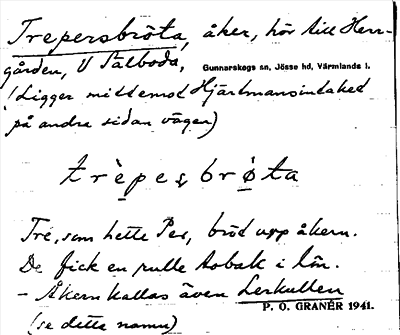 Trepersbröta, åker, hör till Herr-
gården, V Sälboda, Gunnarskogs sn, Jösse hd, Värmlands l.
(Ligger mittemot Hjärtmansintaket
på andra sidan vägen)
trèpeʂbrøta
Tre, som hette Per, bröd upp åkern.
De fick en rulle tobak i lön.
– Åkern kallas även Lerkullen
P. O. GRANÉR 1941.
(se detta namn)